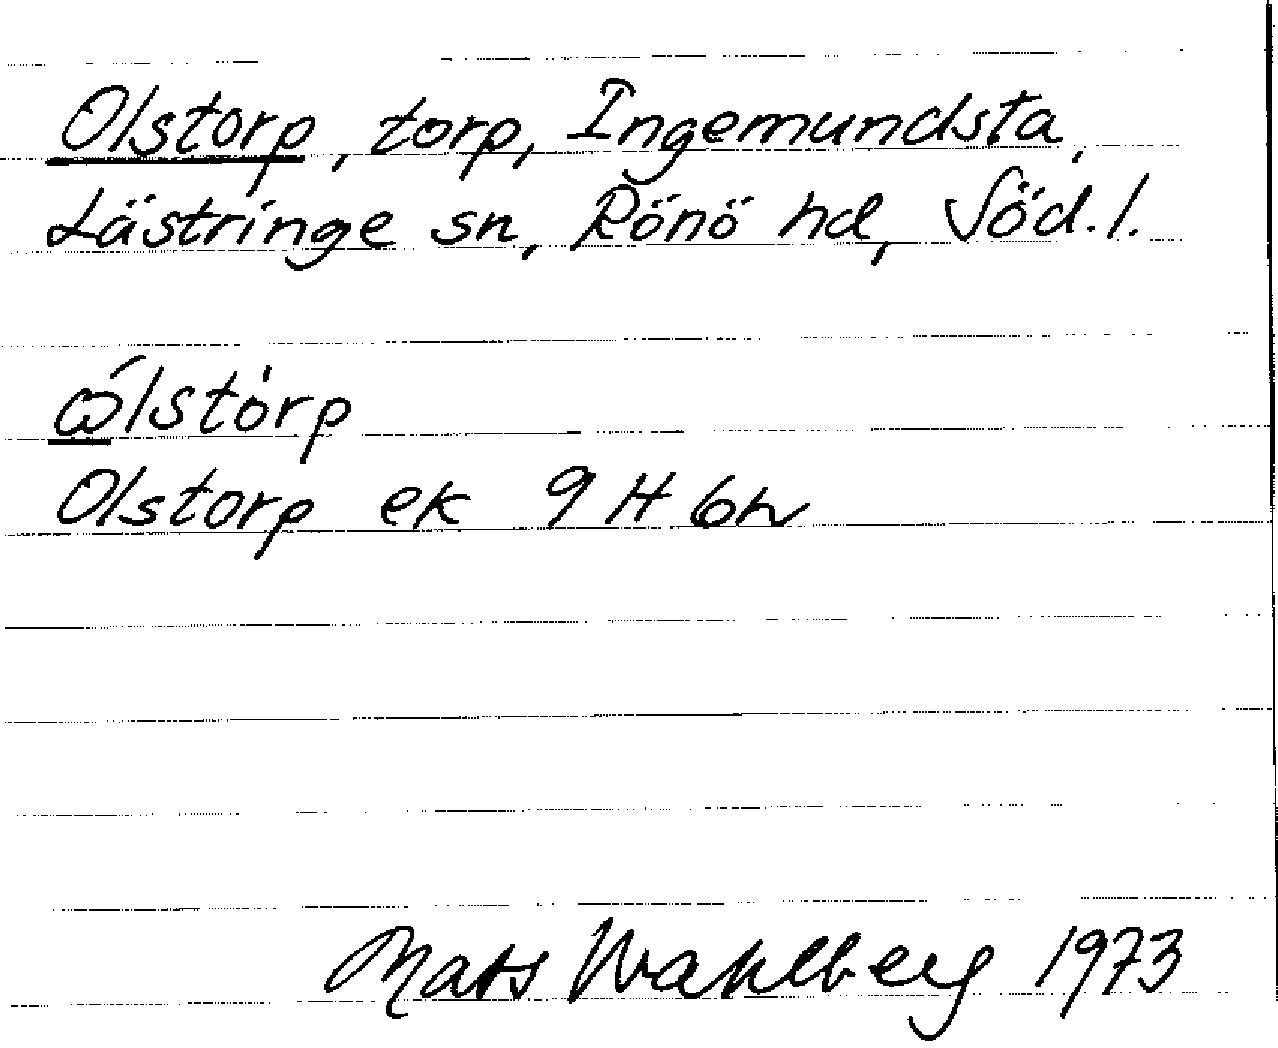 Olstorp, torp, Ingemundsta,
Lästringe sn, Rönö hd, Söd.l.
ώlstòrp
Olstorp ek 9 H 6h
Mats Wahlberg 1973